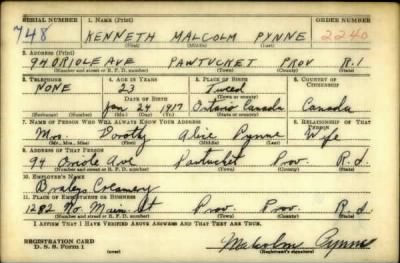 SERIAL NUMBER 1. NAME (Print) ORDER NUMBER
748 KENNETH MALCOLM PYNNE 2240
(First) (Middle) (Last)
2. ADDRESS (Print)
94 ORIOLE AVE PAWTUCKET PROV R.I
(Number and street or R. F. D. number) (Town) (County) (State)
3. TELEPHONE 4. AGE IN YEARS 5. PLACE OF BIRTH 6. COUNTRY OF CITIZENSHIP
NONE 23 Tweed
DATE OF BIRTH (Town or county)
Jan 24 1917 Ontario Canada Canada
7. NAME OF PERSON WHO WILL ALWAYS KNOW YOUR ADDRESS 8. RELATIONSHIP OF THAT PERSON
Mrs. Dorothy Pynne Wife
(Mr., Mrs., Miss) (First) (Middle) (Last)
9. ADDRESS OF THAT PERSON
94 Oriole Ave Pawtucket Prov. R.I.
(Number and street or R. F. D. number) (Town) (County) (State)
10. EMPLOYER'S NAME
Creamery
11. PLACE OF EMPLOYMENT OR BUSINESS
1282 No. Main St Prov. Prov. R.I.
(Number and street or R. F. D. number) (Town) (County) (State)
I AFFIRM THAT I HAVE VERIFIED ABOVE ANSWERS AND THAT THEY ARE TRUE.
REGISTRATION CARD
D. S. S. Form 1 (over) Malcolm Pynne
(Registrant's signature)